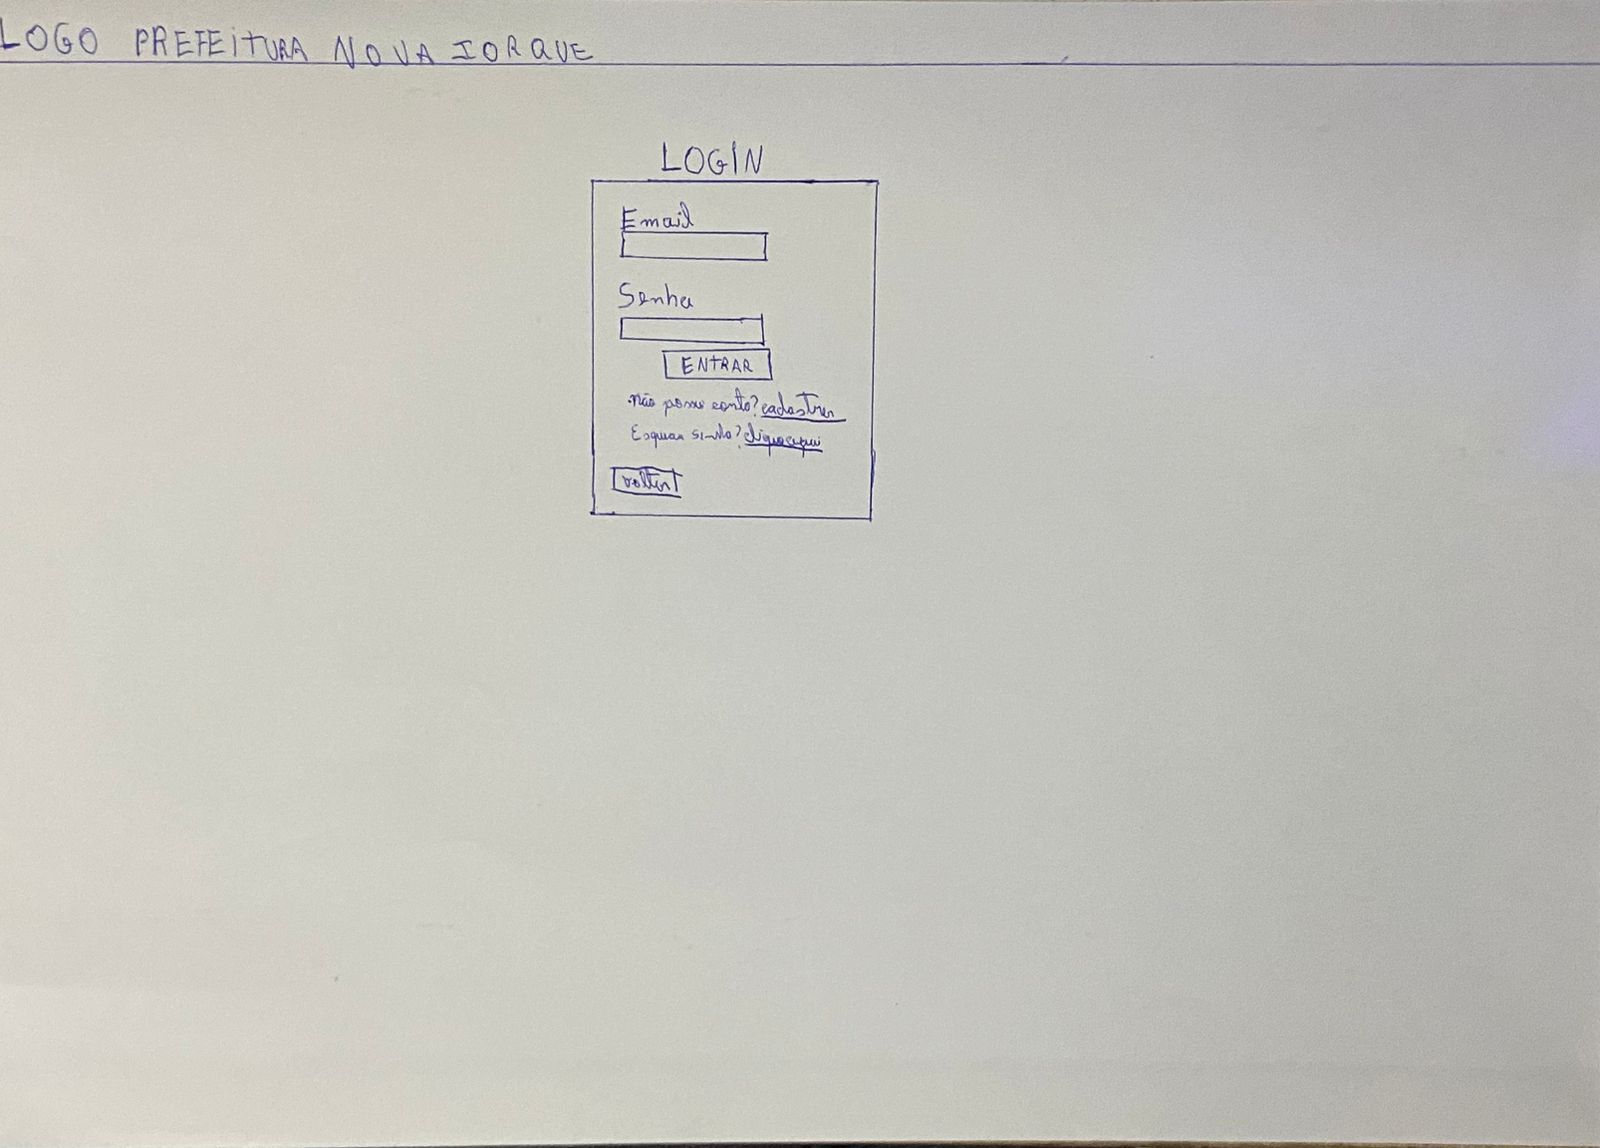 LOGO PREFEITURA NOVA IORQUE
LOGIN
Email
Senha
ENTRAR
não possui conta? cadastrar
Esqueceu senha? clique aqui
voltar